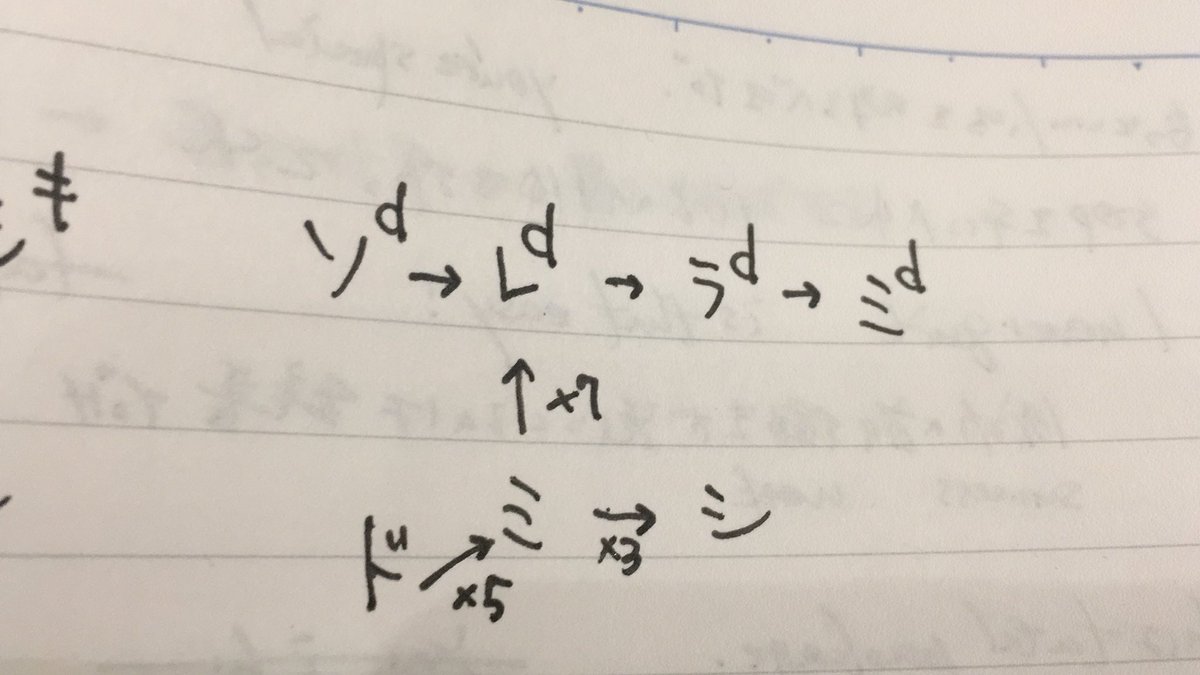 シ キ
ソd → レd → ラd → ミd
↑ ×7
ド ↗ ×5 ミ → ×3 シ